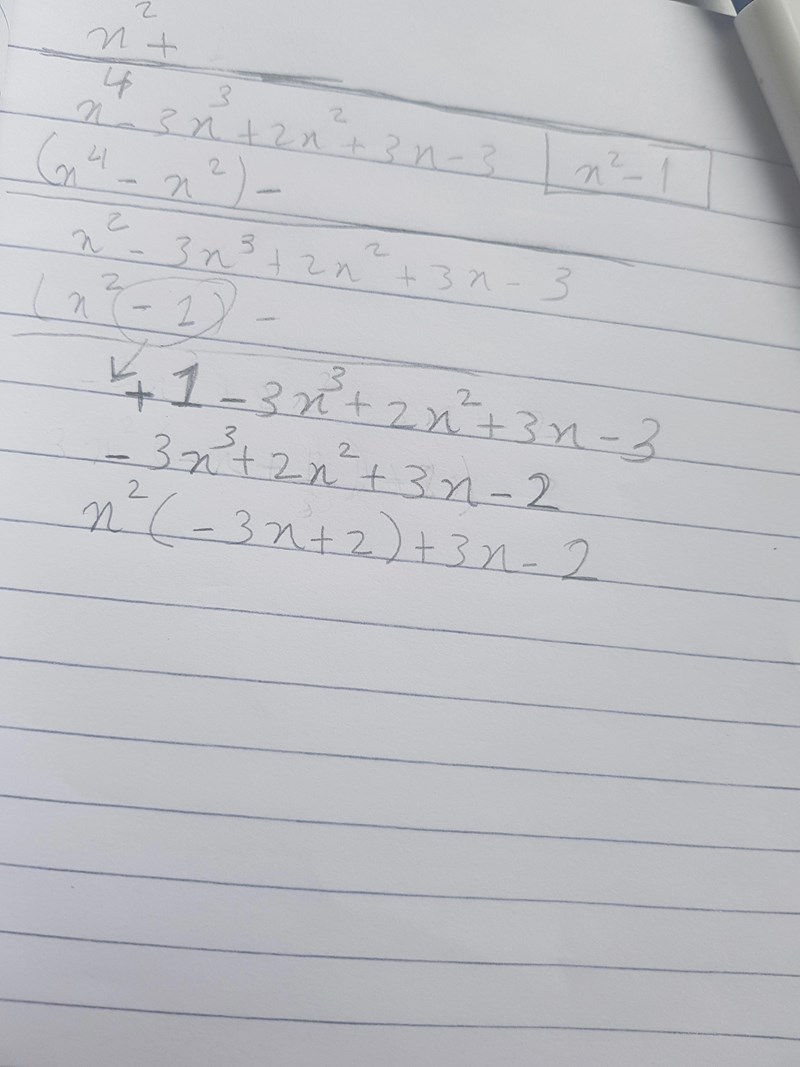 x² +
x⁴ - 3x³ + 2x² + 3x - 3 | x² - 1
(x⁴ - x²) -
x² - 3x³ + 2x² + 3x - 3
(x² - 1) -
+ 1 - 3x³ + 2x² + 3x - 3
- 3x³ + 2x² + 3x - 2
x² (- 3x + 2) + 3x - 2